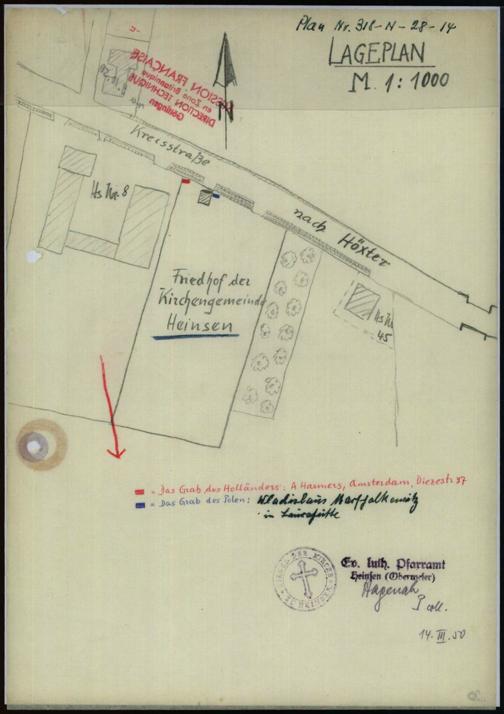 Plan Nr. 318-N-28-14
LAGEPLAN
M. 1:1000
MISSION FRANÇAISE
en Zone Britannique
DIRECTION TECHNIQUE
Göttingen
Kreisstraße
nach Höxter
Hs Nr. 8
Friedhof der
Kirchengemeinde
Heinsen
Hs Nr.
45
= Das Grab des Holländers: A Harmers, Amsterdam, Diezestr. 37
= Das Grab des Polen: Wladislaus
in
Ev. luth. Pfarramt
Heinsen (Oberweser)
Hagenah
P. coll.
14. III. 50